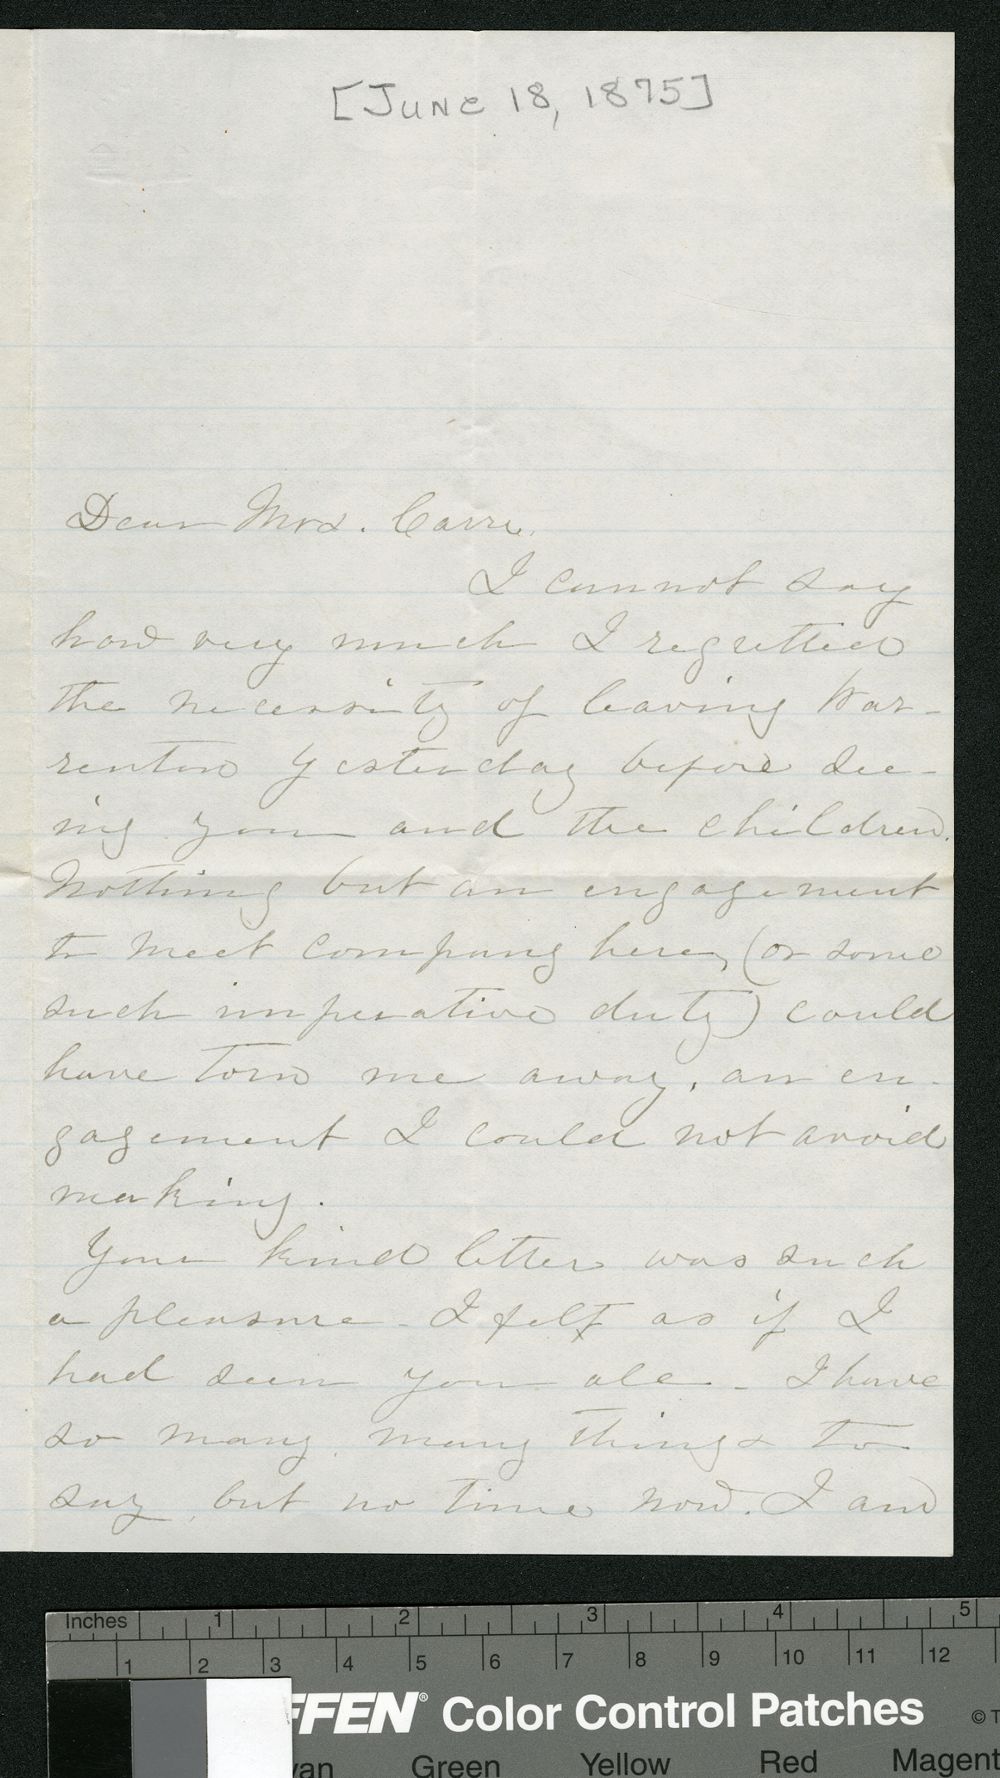 [JUNE 18, 1875]
Dear Mrs. Carr.
I cannot say
how very much I regretted
the necessity of leaving War-
renton yesterday before see-
ing you and the children.
Nothing but an engagement
to meet company here, (or some
such imperative duty) could
have torn me away, an en-
gagement I could not avoid
making.
Your kind letter was such
a pleasure - I felt as if I
had seen you all - I have
so many, many things to
say, but no time now. I am
Inches 1 2 3 4 5
1 2 3 4 5 6 7 8 9 10 11 12
FFEN® Color Control Patches © T
yan Green Yellow Red Magent